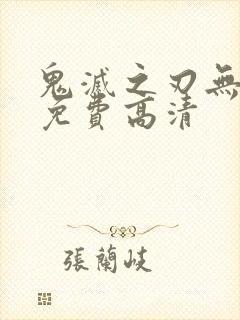 鬼滅之刃無
免費高清
張蘭岐